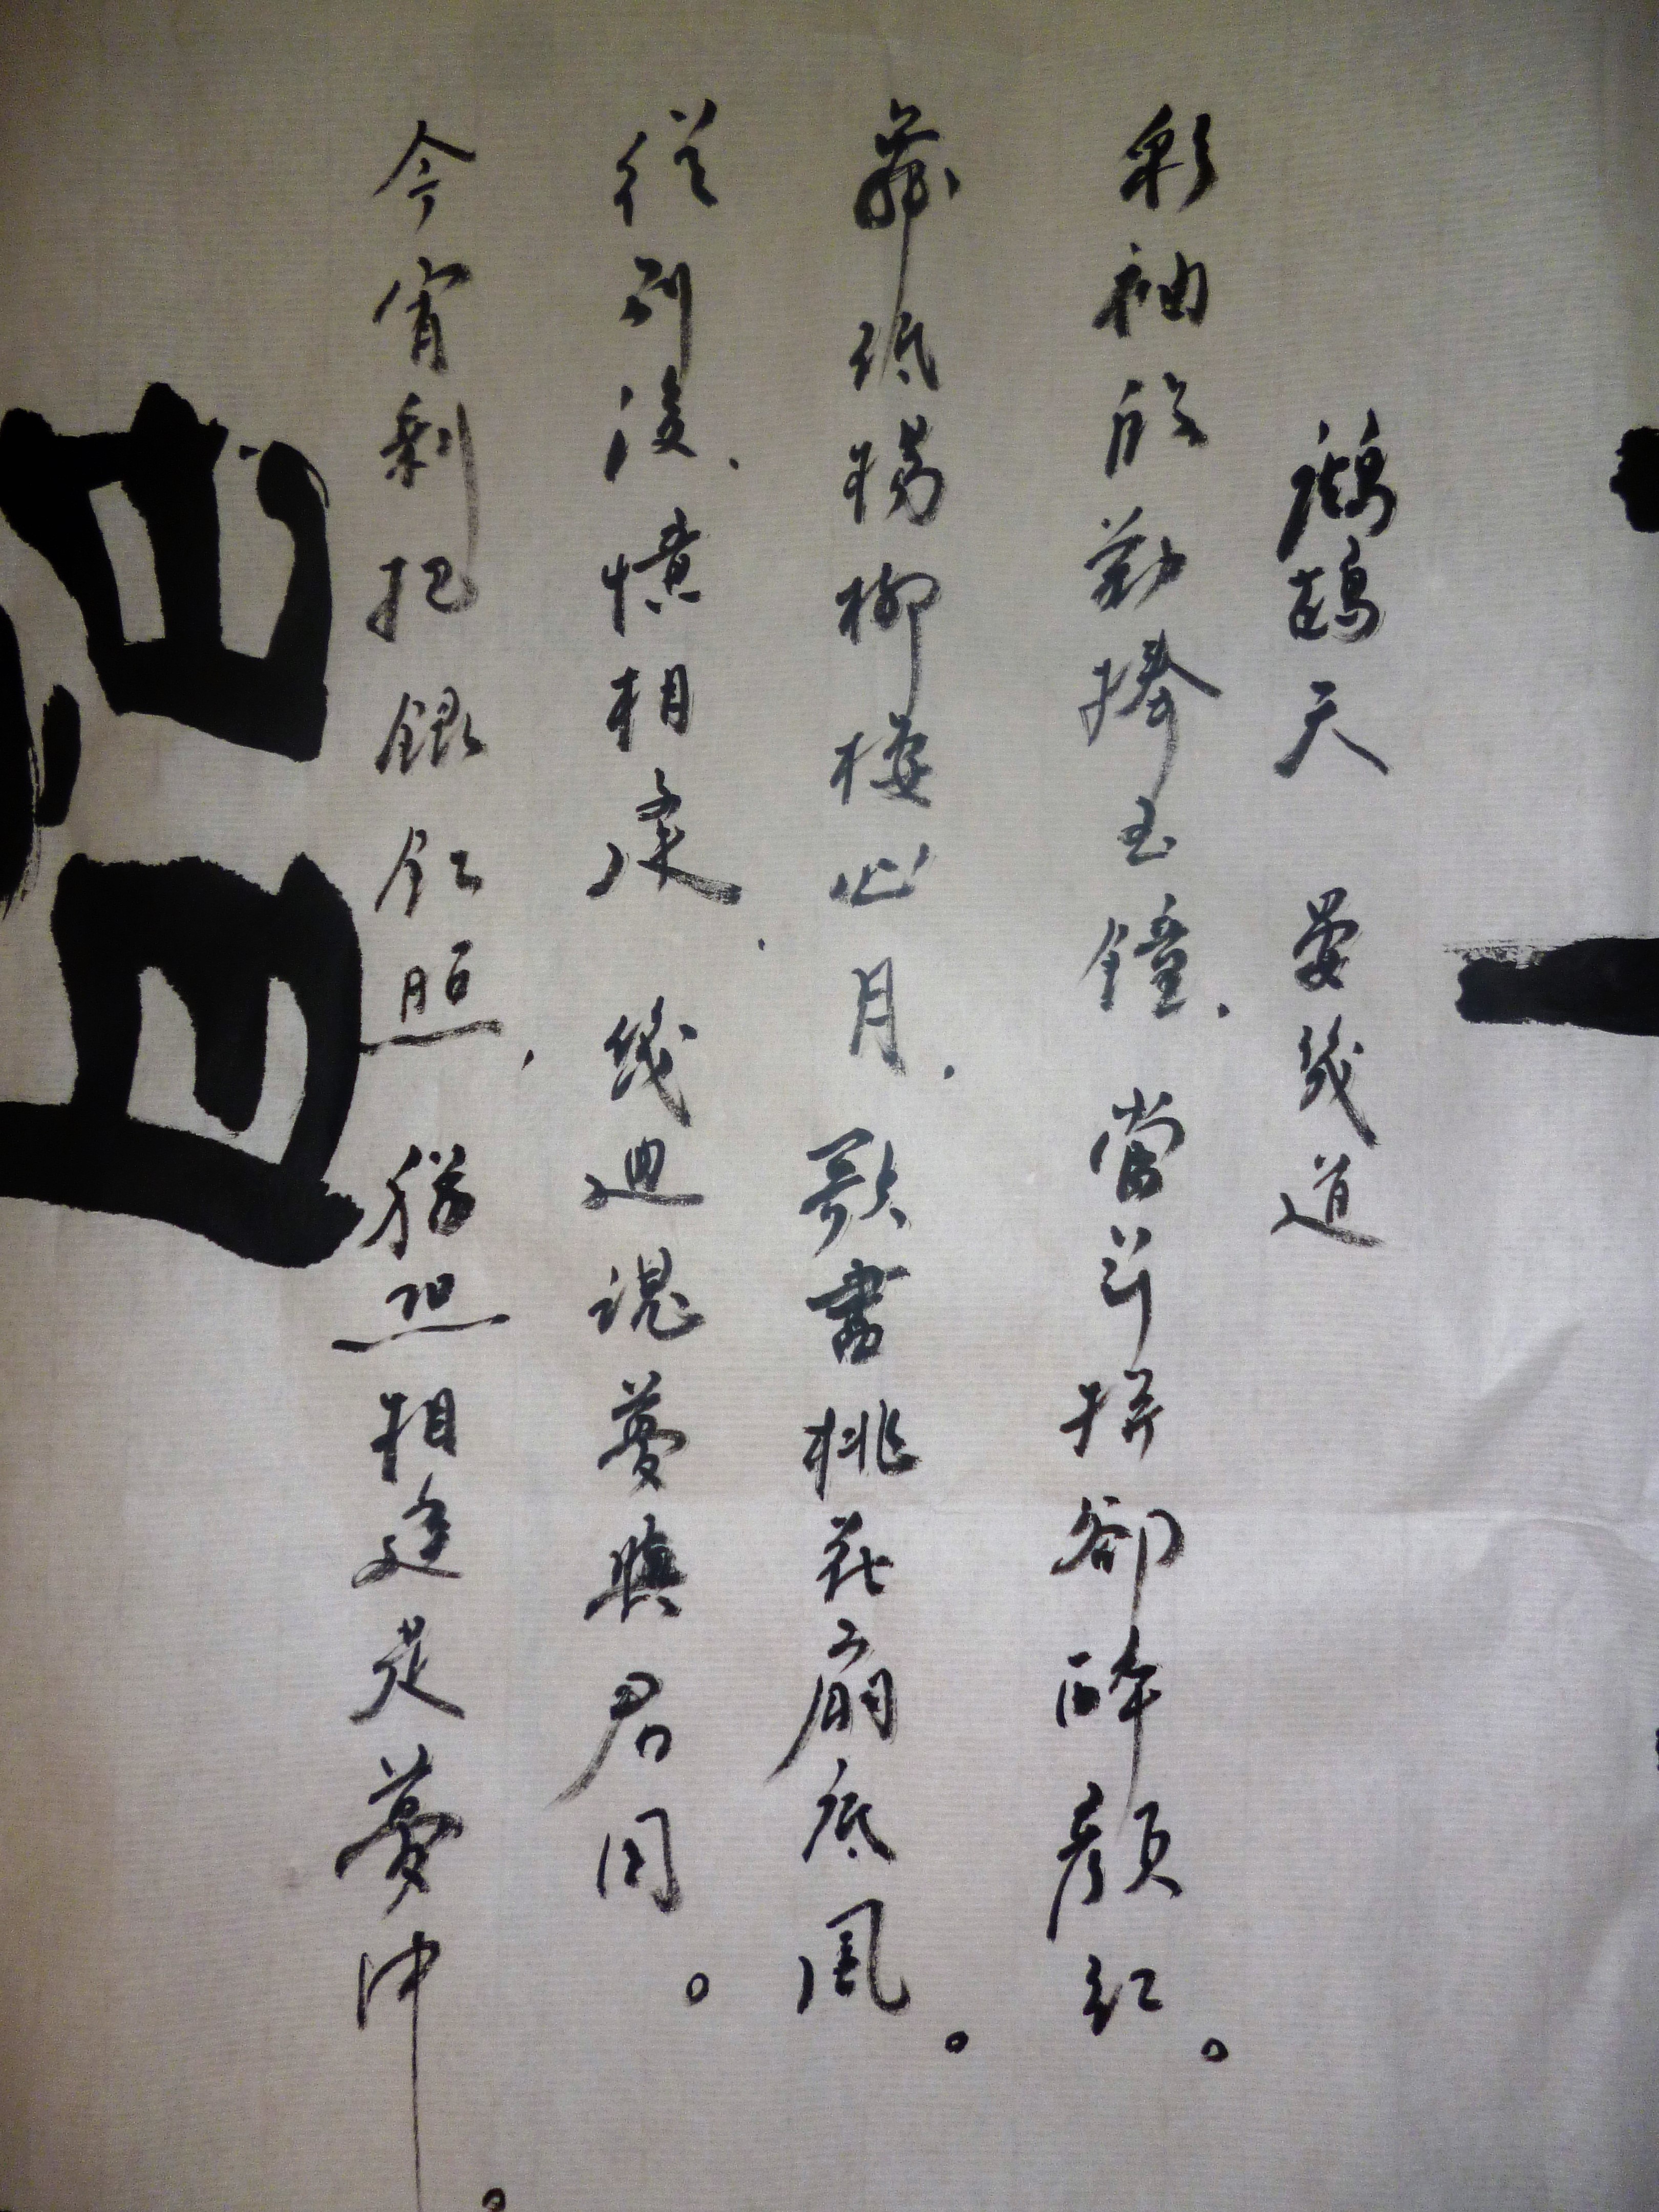 鷓鴣天 晏幾道
彩袖殷勤捧玉鐘，當年拚卻醉顏紅。
舞低楊柳樓心月，歌盡桃花扇底風。
從別後，憶相逢，幾迴魂夢與君同。
今宵剩把銀釭照，猶恐相逢是夢中。